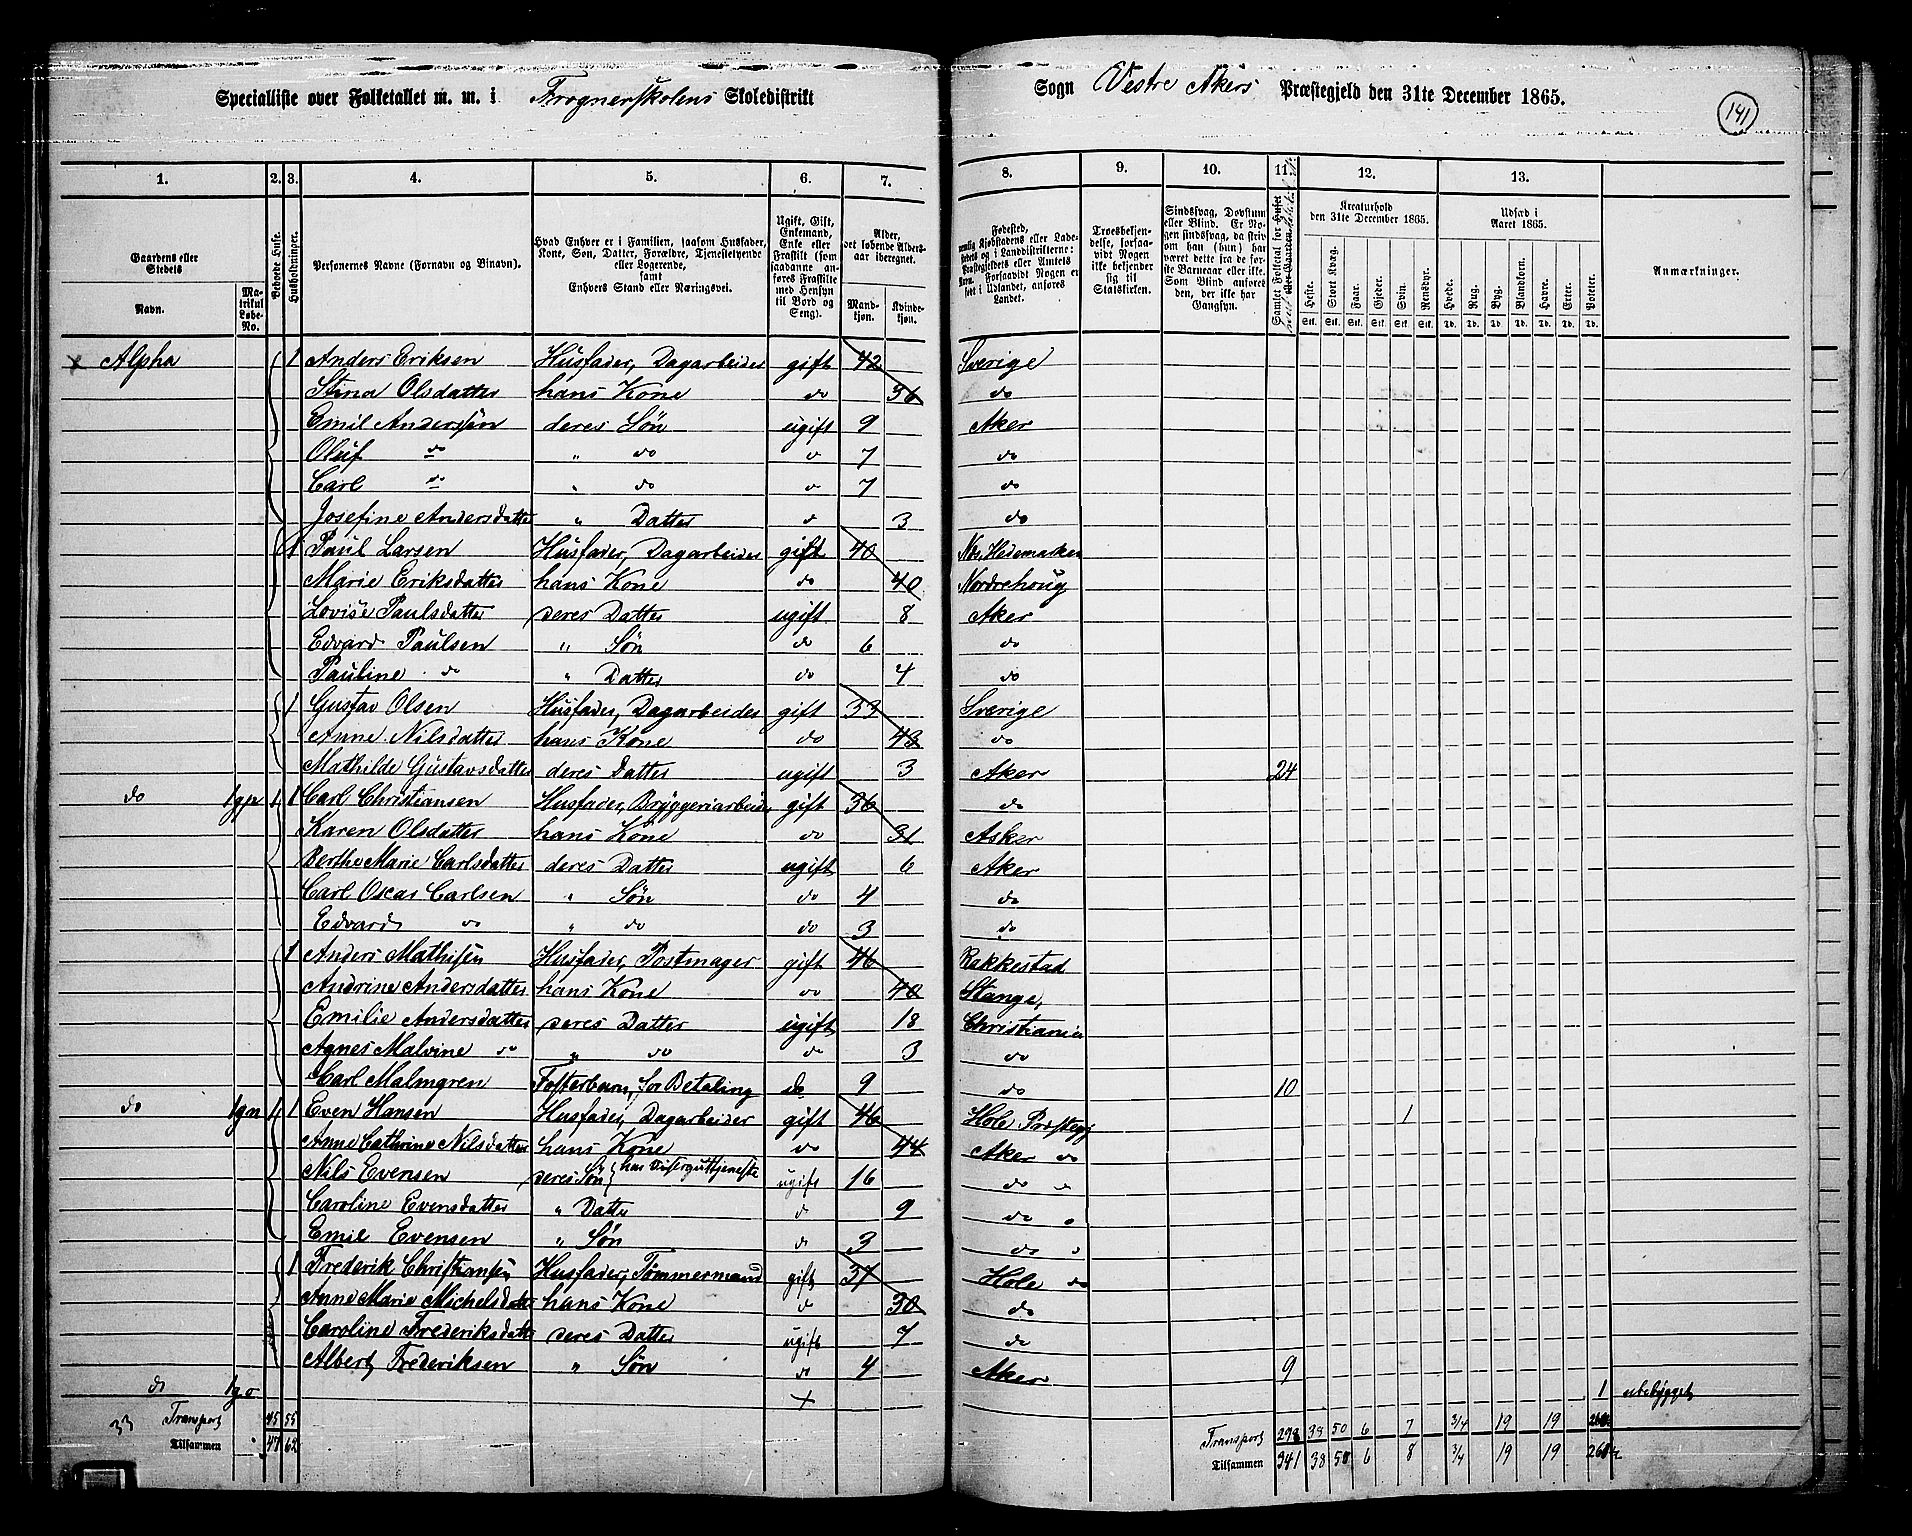 Specialliste over Folketallet m. m. i Frognerskolens Skoledistrikt Sogn Vestre Akers Præstegjeld den 31te December 1865.
141
1. 2. 3. 4. 5. 6. 7. 8. 9. 10. 11. 12. 13.
Gaardens eller Stedets
Navn.
Matrikul Løbe-No.
Beboede Huse.
Husholdninger.
Personernes Navne (Fornavn og Binavn).
Hvad Enhver er i Familien, saasom Husfader, Kone, Søn, Datter, Forældre, Tjenestetyende eller Logerende, samt Enhvers Stand eller Næringsvei.
Ugift, Gift, Enkemand, Enke eller Fraskilt (som saadanne anføres Fraskilte med Hensyn til Bord og Seng).
Alder, det løbende Alders-aar iberegnet.
Mand-kjøn.
Kvinde-kjøn.
Fødested,
Troesbekjendelse, forsaavidt Nogen ikke bekjender sig til Statskirken.
Sindssvag, Døvstum eller Blind. Er Nogen sindssvag, da skrives om han (hun) har været dette fra i de første Barneaar eller ikke. Som Blind anføres den, der ikke har Gangsyn.
Kreaturhold den 31te December 1865.
Heste. Stort Kvæg. Faar. Gjeder. Svin. Rensdyr.
Udsæd i Aaret 1865.
Hvede. Rug. Byg. Blandkorn. Havre. Erter. Poteter.
Anmærkninger.
x Alpha 1 Anders Eriksen Husfader, Dagarbeider gift 42 Sverige
Stina Olsdatter hans Kone do 36 do
Emil Anderssøn deres Søn ugift 9 Aker
Oluf do " do o 7 do
Carl do " do o 7 do
Josefine Andersdatter " Datter d 3 do
1 Paul Larsen Husfader, Dagarbeider gift 40 Næs, Hedemarken
Marie Eriksdatter hans Kone do 40 Nordrehoug
Lovise Paulsdatter deres Datter ugift 8 Aker
Edvard Paulsen " Søn do 6 do
Pauline do " Datter do 4 do
1 Gustav Olsen Husfader, Dagarbeider gift 33 Sverige
Anne Nilsdatter hans Kone do 43 do
Mathilde Gustavsdatter deres Datter ugift 3 Aker 24
do 1 1 Carl Christiansen Husfader, Bryggeriarbeider gift 36 do
Karen Olsdatter hans Kone do 31 Asker
Berthe Marie Carlsdatter deres Datter ugift 6 Aker
Carl Oscar Carlsen " Søn do 4 do
Edvard do " do do 3 do
1 Anders Mathisen Husfader, Postmager gift 46 Rakkestad
Andrine Andersdatter hans Kone do 40 Stange,
Emilie Andersdatter deres Datter ugift 18 Christiania
Agnes Malvine do " do do 3 do
Carl Malmgren Fosterbarn, for Betaling do 9 do 10
do 1 1 Even Hansen Husfader, Dagarbeider gift 46 Hole Præstegj 1
Anne Cathrine Nilsdatter hans Kone do 44 Aker do
Nils Evensen deres Søn ugift 16 do "
Caroline Evensdatter " Datter d 9 do "
Emil Evensen " Søn do 3 do "
1 Frederik Christiansen Husfader, Tømmermand gift 37 Hole do
Anne Marie Michelsdatter hans Kone do 30 do
Caroline Frederiksdatter deres Datter ugift 7 do
Albert Frederiksen " Søn do 4 Aker 9
do 1 ubebygget
33 Transport 45 55 Transport 298 38 50 6 7 3/4 19 19
Tilsammen 47 62 Tilsammen 341 38 50 6 8 3/4 19 19